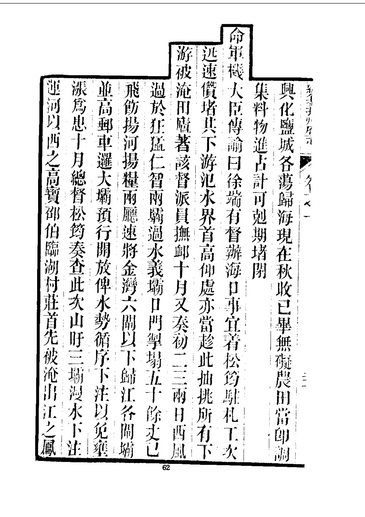 興化鹽城各蕩歸海現在秋收已畢無礙農田當卽調
集料物進占計可剋期堵閉
命軍機大臣傳諭曰徐端有督辦海口事宜着松筠駐札工次
迅速償堵其下游氾水界首高仰處亦當趁此抽挑所有下
游被淹田廬著該督派員撫卹十月又奏初二三兩日西風
過於狂猛仁智兩壩過水義壩口門掣塌五十餘丈已
飛飭揚河揚糧兩廳速將金灣六閘以下歸江各閘壩
並高郵車邏大壩預行開放俾水勢循序下注以免壅
漲爲患十月總督松筠奏查此次山盱三壩漫水下注
運河以西之高寶邵伯臨湖村莊首先被淹出江之鳳
62